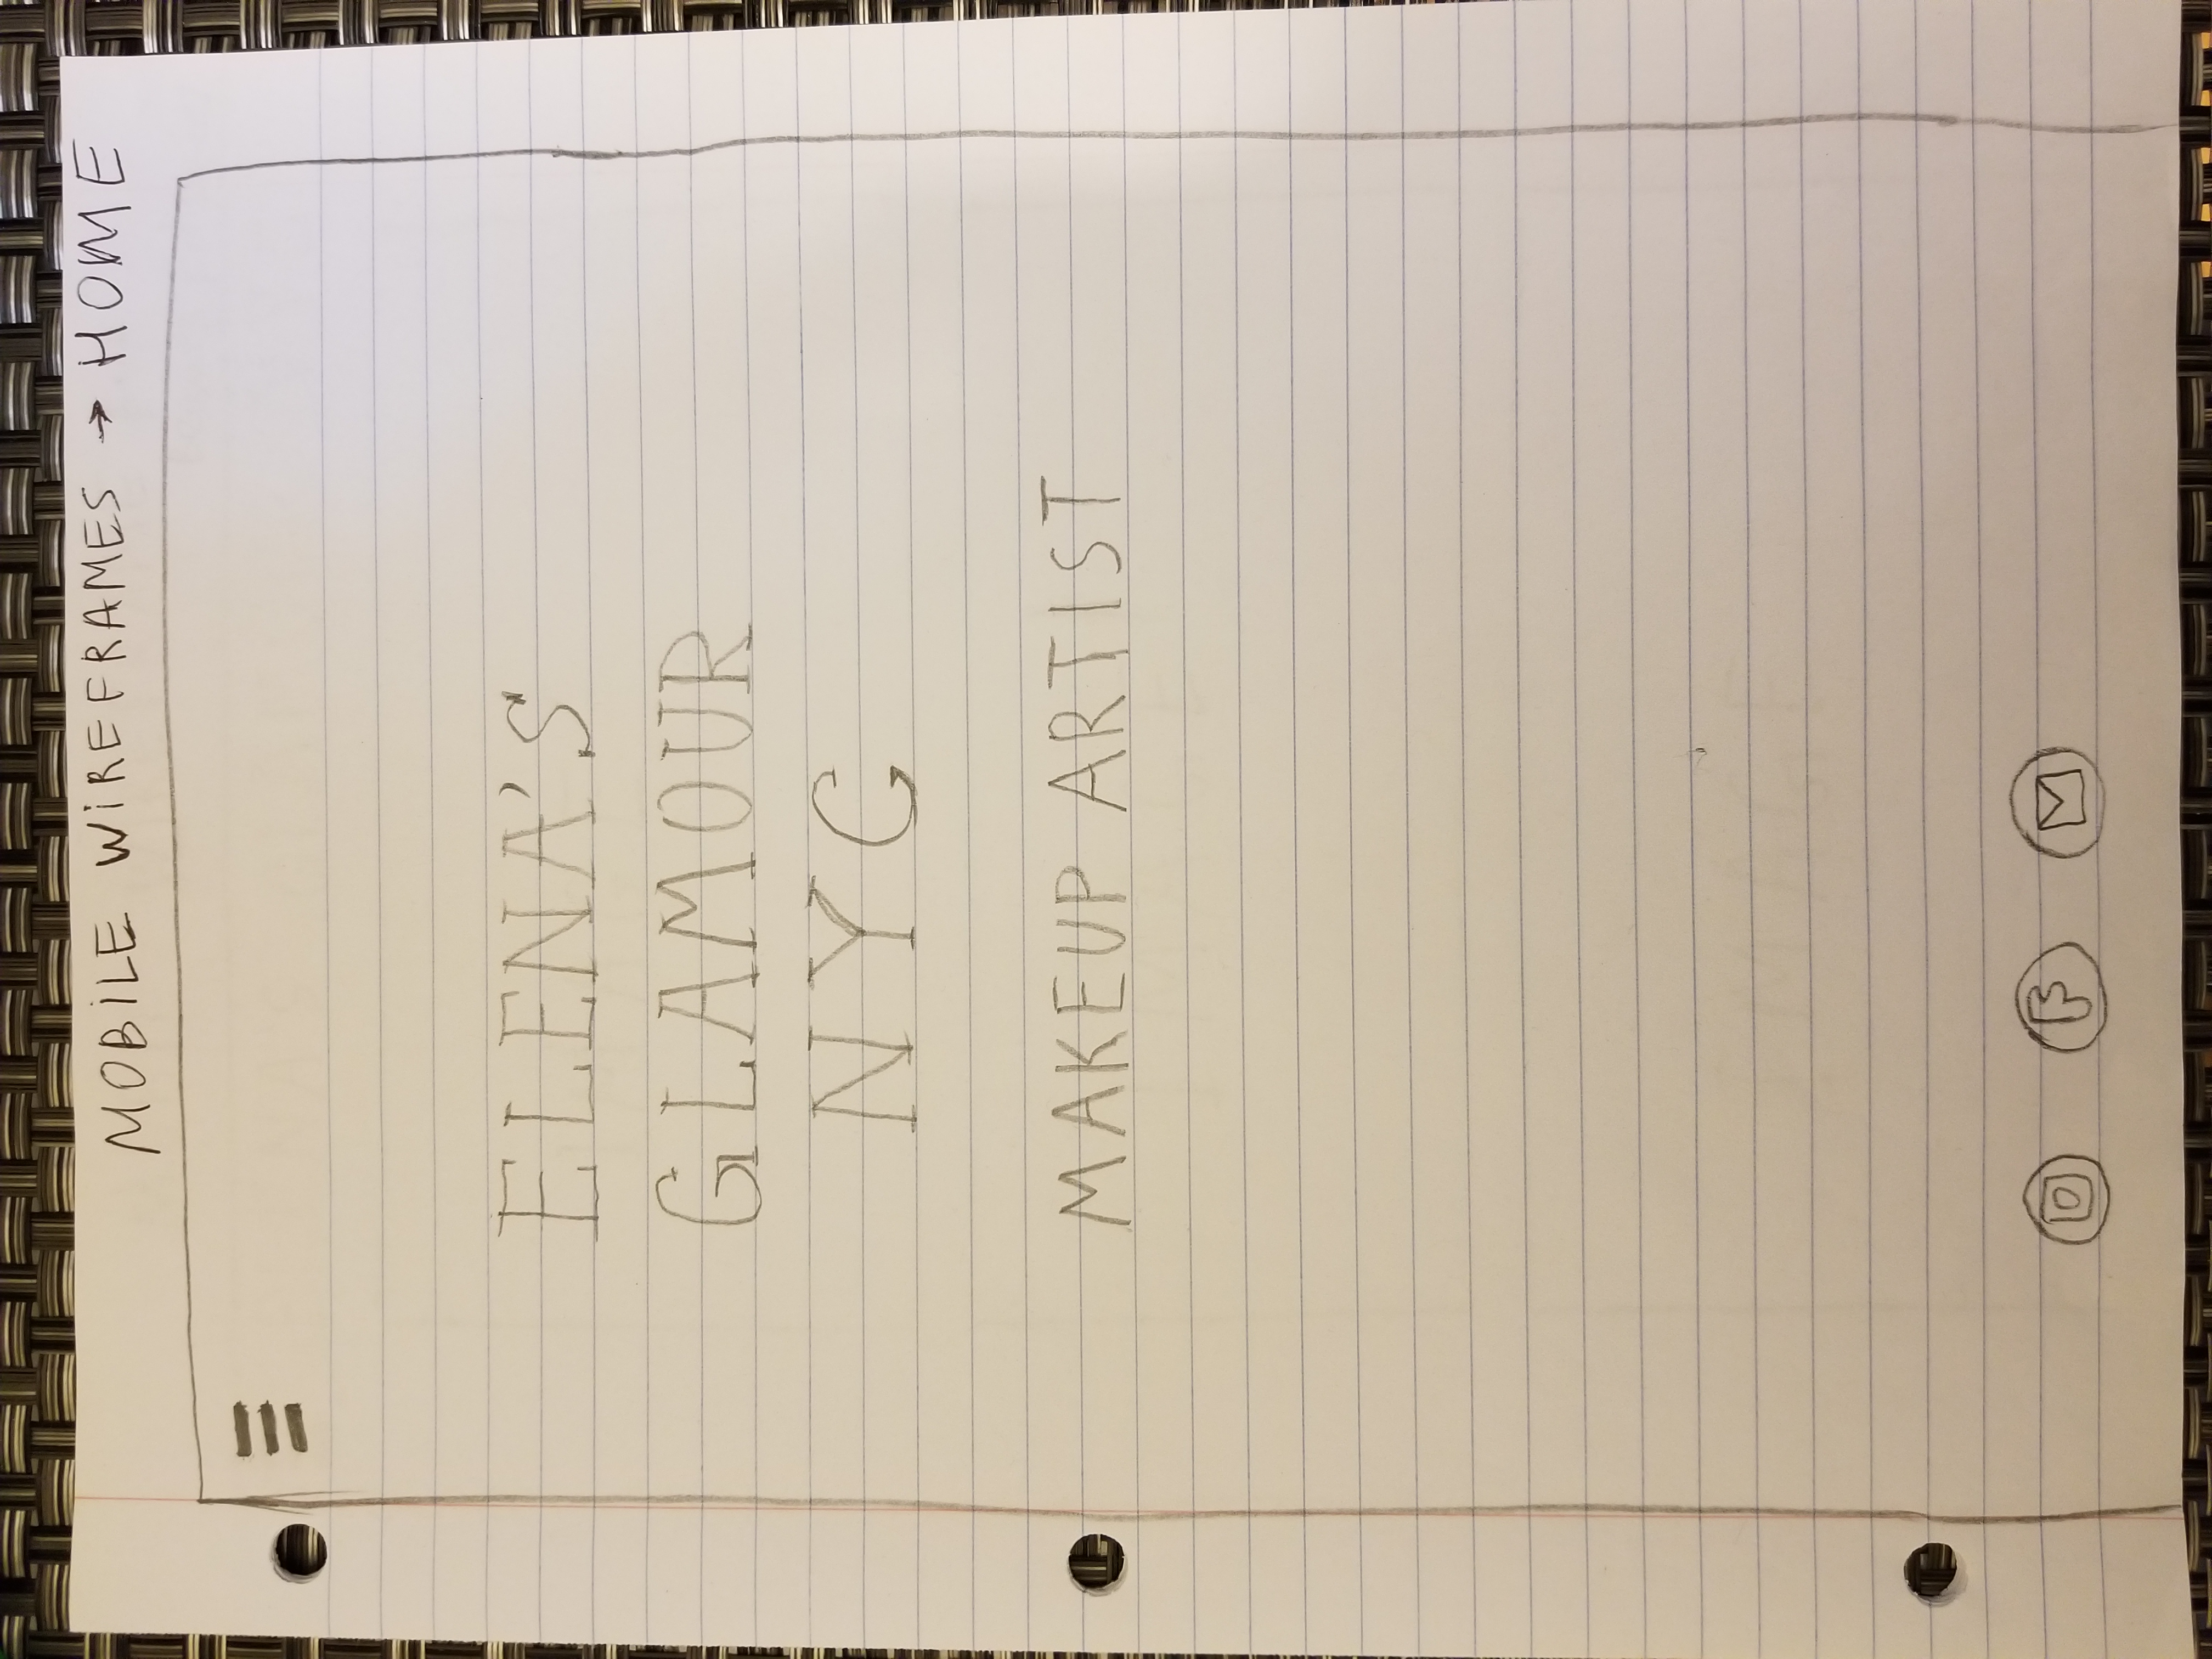 MOBILE WIREFRAMES → HOME
ELENA'S
GLAMOUR
NYC
MAKEUP ARTIST